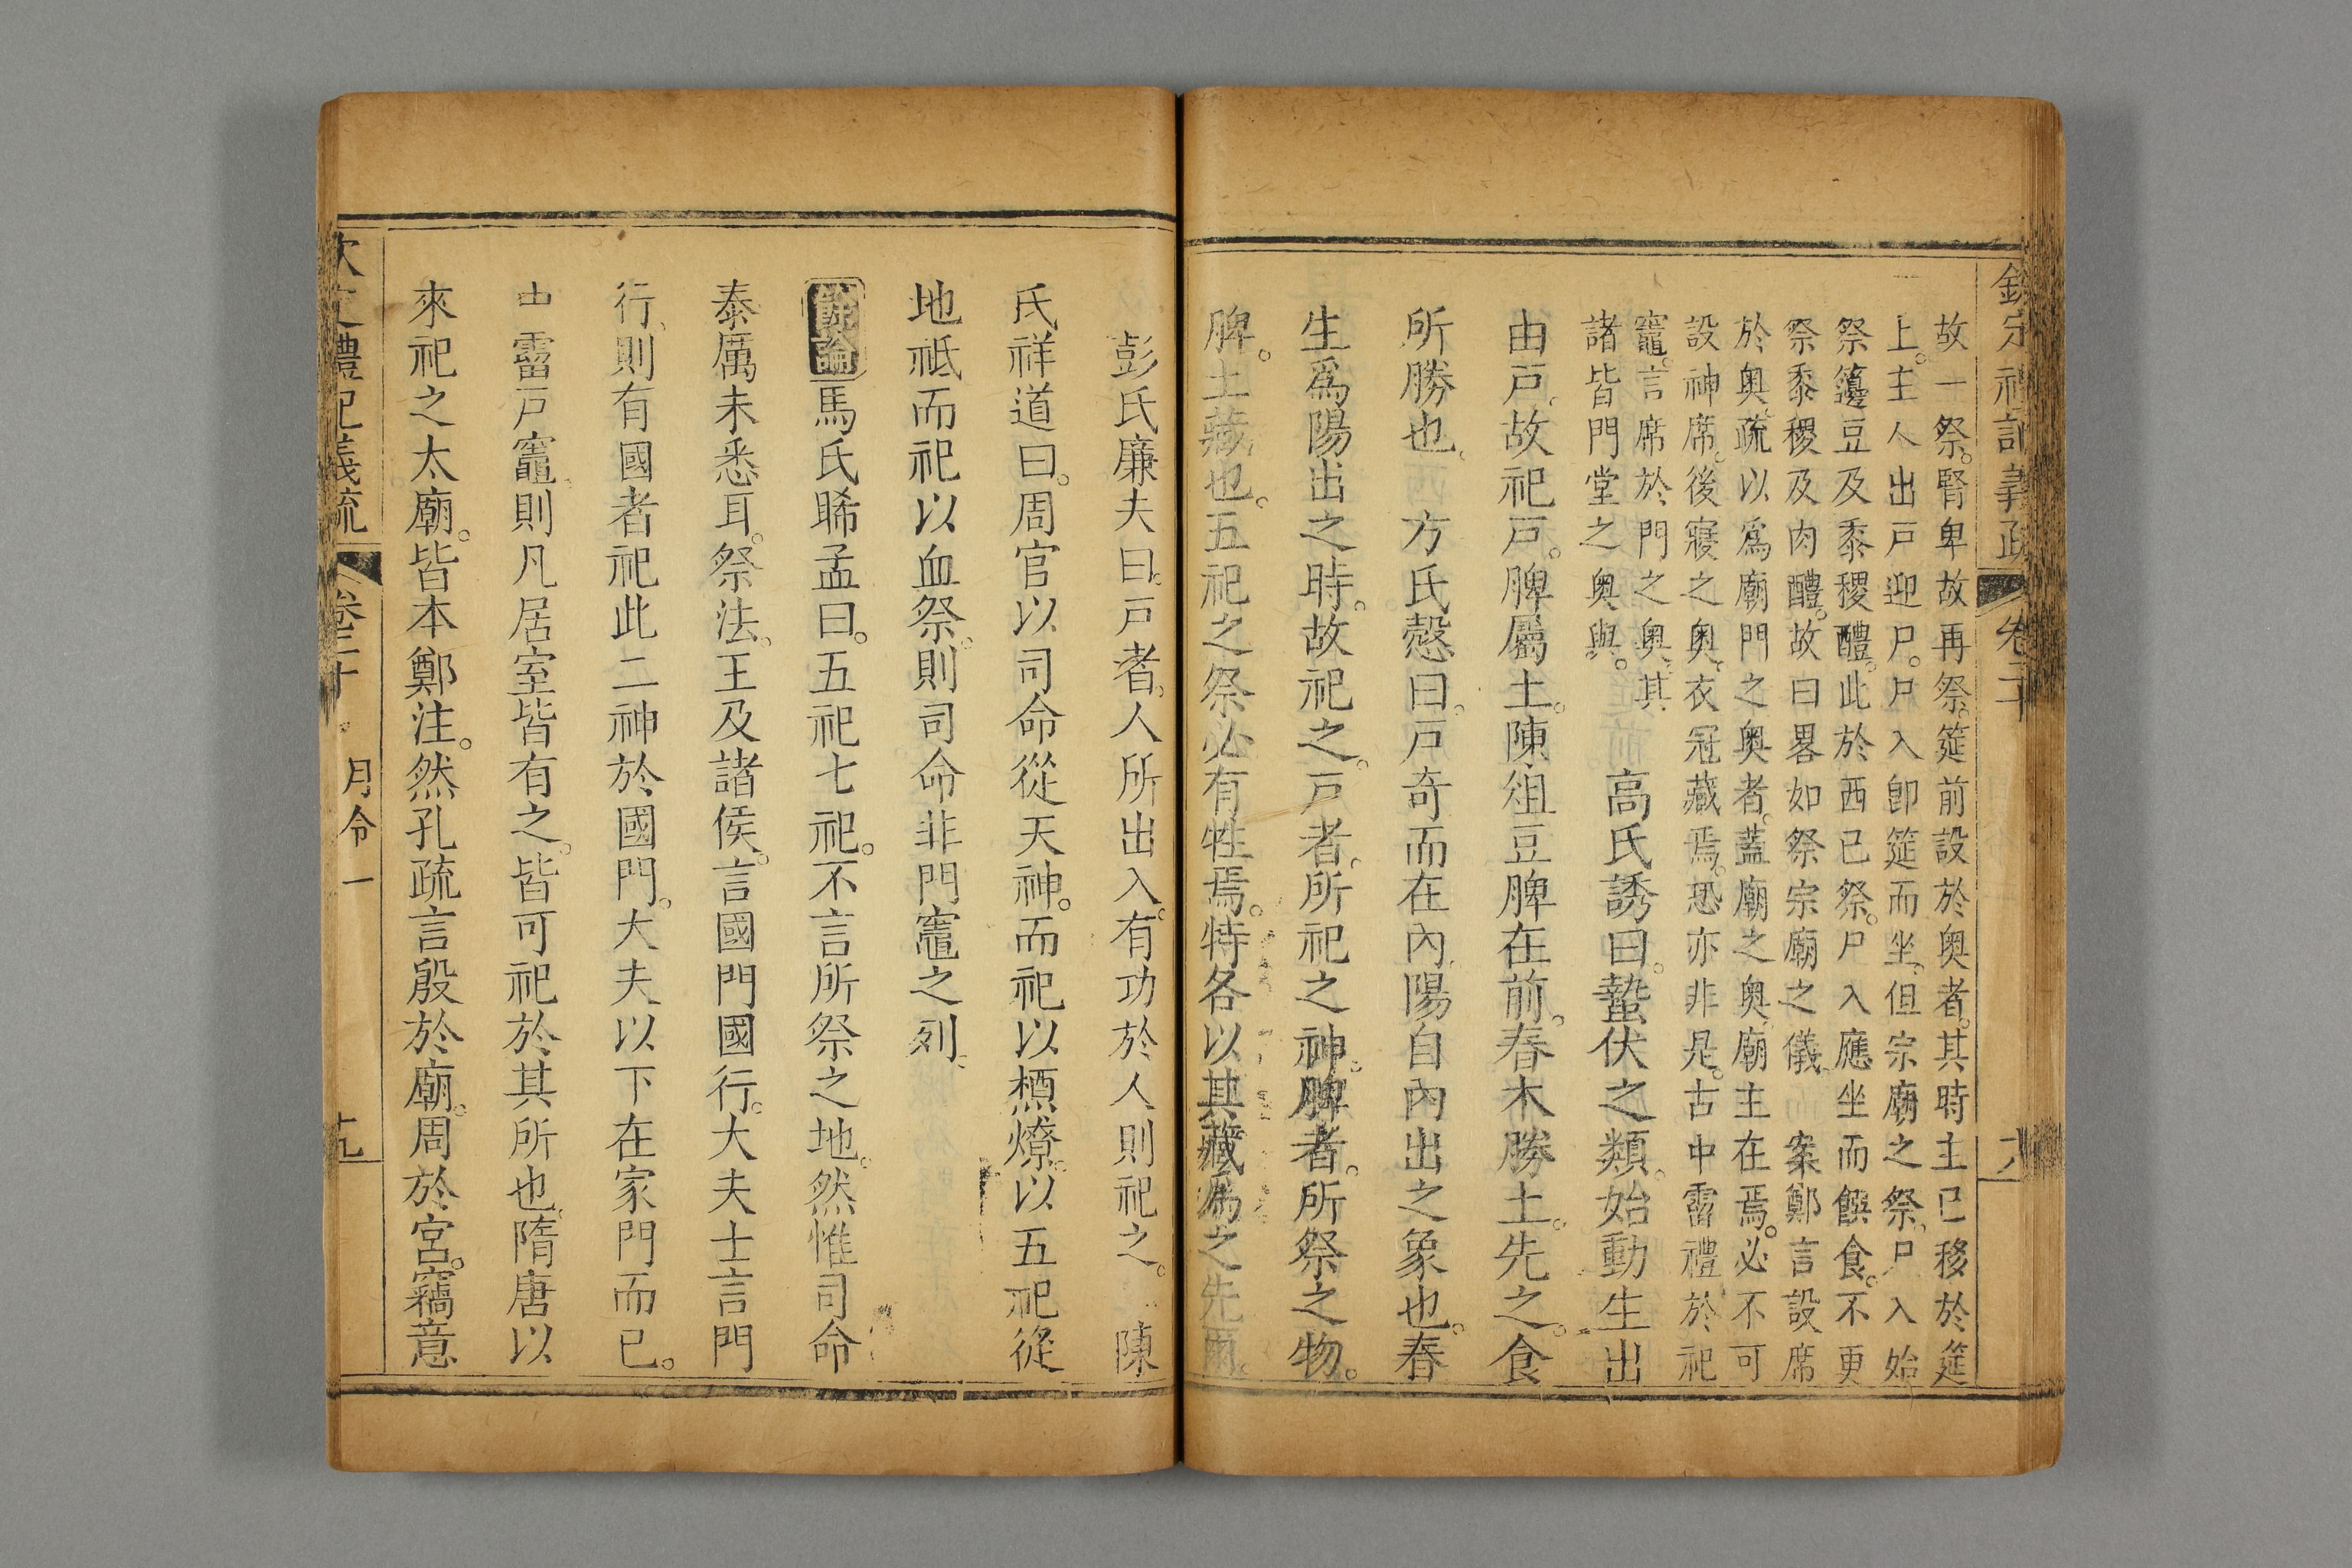 欽定禮記義疏 卷二十
故一祭。腎卑故再祭。筵前設於奥者。其時主已移於筵
上。主人出戸迎尸。尸入卽筵而坐。但宗廟之祭、尸入始
祭籩豆及黍稷醴。此於西已祭。尸入應坐而饌食。不更
祭黍稷及肉醴。故曰畧如祭宗廟之儀。 案鄭言設席
於奥、疏以爲廟門之奥者。蓋廟之奥、廟主在焉。必不可
設神席。後寢之奥、衣冠藏焉。恐亦非是。古中霤禮於祀
竈。言席於門之奥。其
諸皆門堂之奥與。
高氏誘曰。蟄伏之類。始動生出
由戸。故祀戸。脾屬土。陳俎豆脾在前。春木勝土。先之。食
所勝也。 方氏慤曰。戸奇而在內、陽自內出之象也。春
生爲陽出之時。故祀之。戸者。所祀之神。脾者。所祭之物。
脾。土藏也。五祀之祭必有牲焉。特各以其藏爲之先爾。
彭氏廉夫曰。戸者。人所出入。有功於人則祀之。 陳
氏祥道曰。周官以司命從天神。而祀以槱燎。以五祀從
地祇而祀以血祭。則司命非門竈之列。
餘論 馬氏睎孟曰。五祀七祀。不言所祭之地。然惟司命
泰厲未悉耳。祭法。王及諸侯。言國門國行。大夫士言門
行、則有國者祀此二神於國門。大夫以下在家門而已。
中霤戸竈。則凡居室皆有之。皆可祀於其所也。隋唐以
來祀之太廟。皆本鄭注。然孔疏言殷於廟。周於宮。竊意
欽定禮記義疏 卷二十 月令一 十九